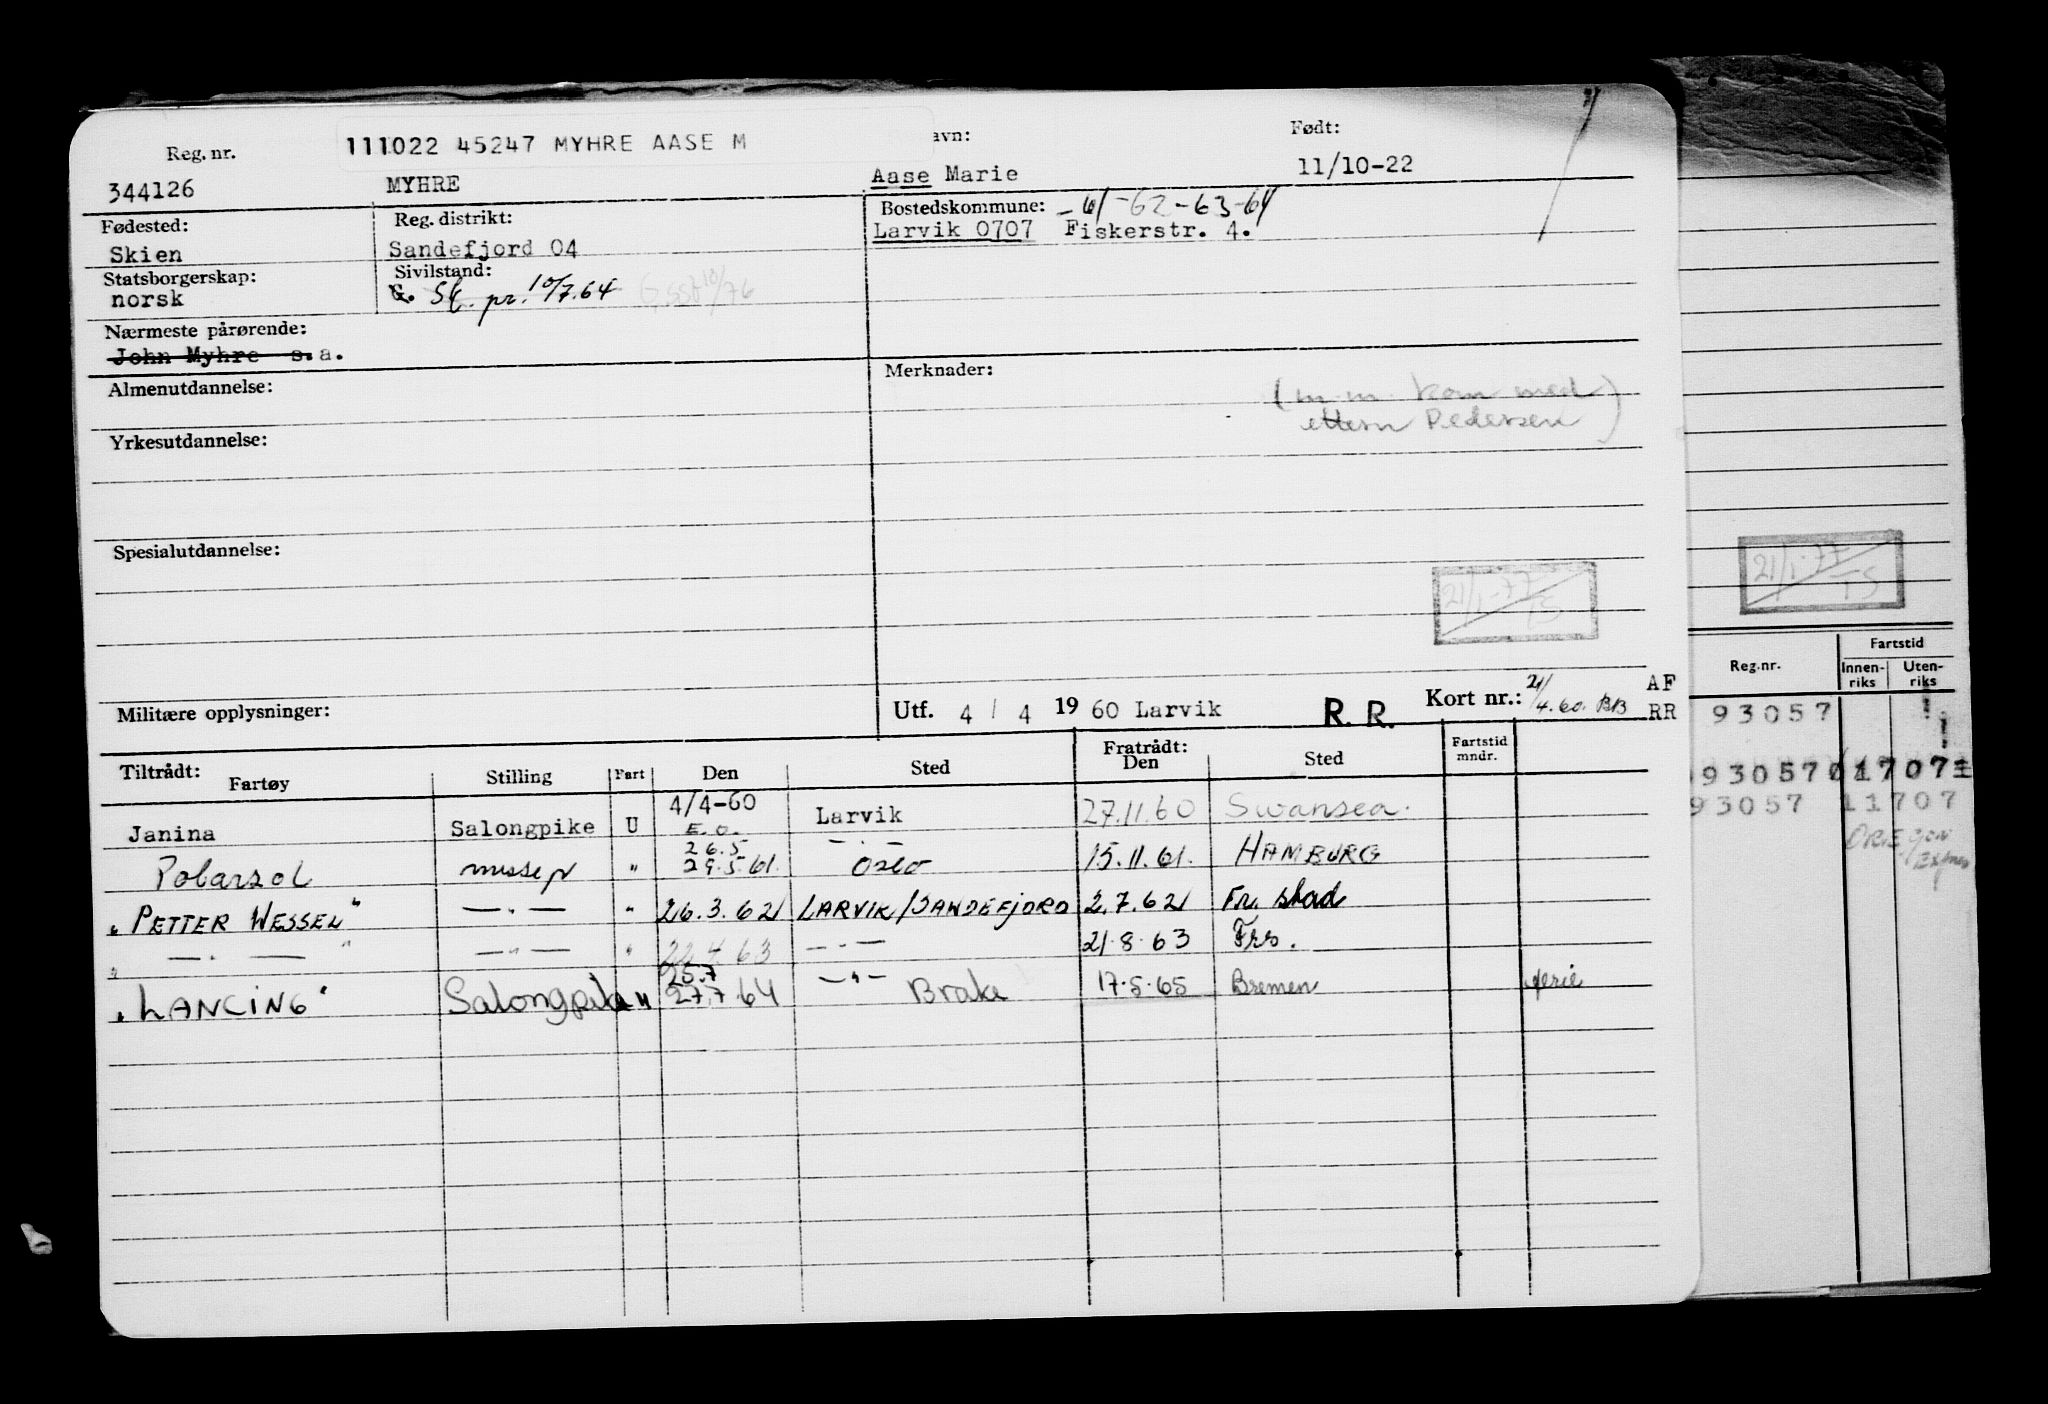 Reg. nr.
111022 45247 MYHRE AASE M
avn:
Født:
344126
MYHRE
Aase Marie
11/10-22
Fødested:
Reg. distrikt:
Bostedskommune: -61-62-63-64
Skien
Sandefjord 04
Larvik 0707 Fiskerstr. 4.
Statsborgerskap:
Sivilstand:
norsk
G. pr. 10/7.64
10/76
Nærmeste pårørende:
John Myhre s.a.
Almenutdannelse:
Merknader:
(m.m. kom med
ettern Pedersen)
Yrkesutdannelse:
Spesialutdannelse:
21/1-77 TS
21/1-77 TS
Militære opplysninger:
Utf. 4 / 4 1960 Larvik
R. R.
Kort nr.: 21/4.60. BB
AF
RR
Reg.nr.
Fartstid
Innen-riks
Uten-riks
93057
93057 11707
93057 11707
Tiltrådt:
Fartøy
Stilling
Fart
Den
Sted
Fratrådt:
Den
Sted
Fartstid mndr.
Janina Salongpike U 4/4-60 E.O. Larvik 27.11.60 Swansea.
Polarsol messep " 26.5 29.5.61. -"- Oslo 15.11.61. HAMBURG
"PETTER WESSEL" -"- " 26.3.62 LARVIK/SANDEFJORD 2.7.62 Fr. stad
" -"- " -"- " 22.4.63 -"- 21.8.63 Frs.
"LANCING" Salongpike " 25.7 27.7.64 -"- Brake 17.5.65 Bremen ferie